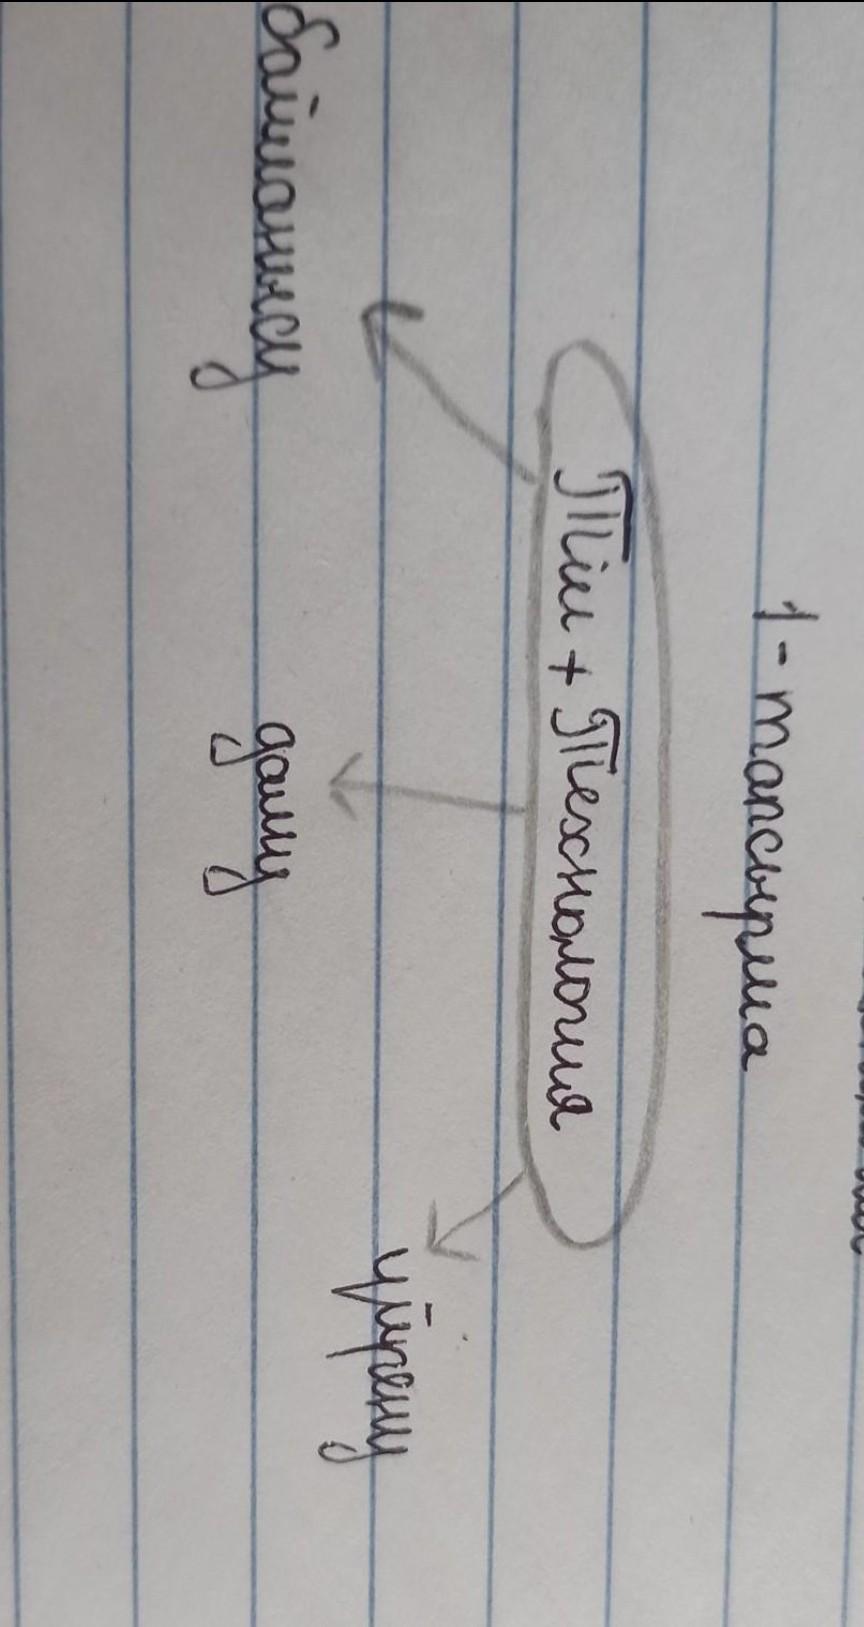 1-тапсырма
Тіл + Технология
байланысу
даму
үйрену